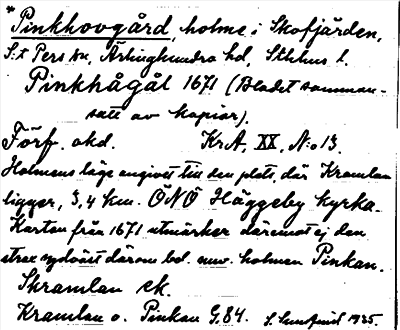 * Pinkhovgård, holme i Skofjärden,
S:t Pers sn, Ärlinghundra hd, Sthlms l.
Pinkhågål 1671 (Bladet samman-
satt av kopior).
Förf. okd. KrA, XX, N:o 13.
Holmens läge angivet till den plats, där Kramlan
ligger, 3,4 km. ÖNÖ Häggeby kyrka.
Kartan från 1671 utmärker däremot ej den
strax sydväst därom bel. nuv. holmen Pinkan.
Skramlan ek.
Kramlan o. Pinkan G. 84. 1935